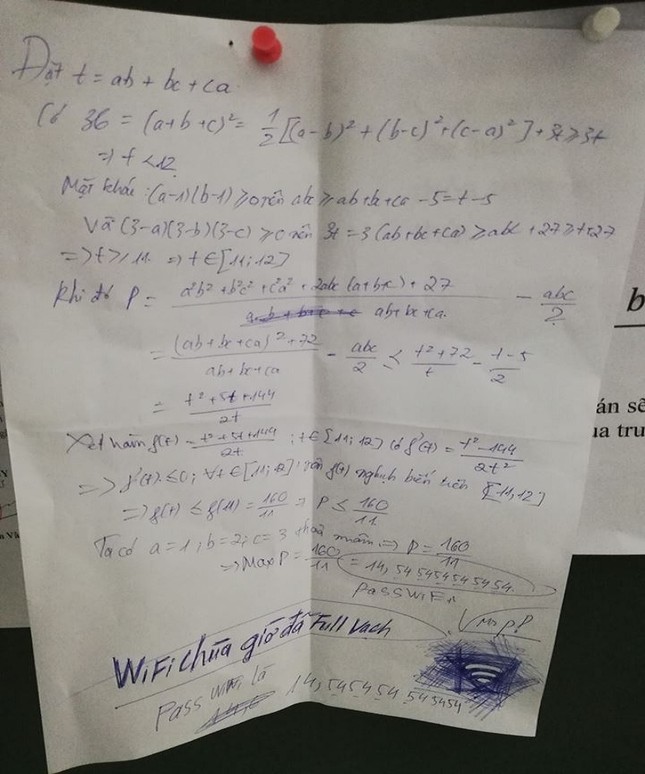 Đặt t = ab + bc + ca.
Có 36 = (a+b+c)² = 1/2 [(a-b)² + (b-c)² + (c-a)²] + 3t ≥ 3t
=> t ≤ 12
Mặt khác: (a-1)(b-1) ≥ 0 nên abc ≥ ab+bc+ca - 5 = t - 5
Và (3-a)(3-b)(3-c) ≥ 0 nên 3t = 3(ab+bc+ca) ≥ abc + 27 ≥ t+27
=> t ≥ 11 => t ∈ [11; 12]
Khi đó P = (a²b² + b²c² + c²a² + 2abc(a+b+c) + 27)/(ab+bc+ca) - abc/2
= ((ab+bc+ca)² + 72)/(ab+bc+ca) - abc/2 ≤ (t²+72)/t - (t-5)/2
= (t² + 5t + 144)/2t
Xét hàm f(t) = (t²+5t+144)/2t ; t ∈ [11; 12] có f'(t) = (t² - 144)/2t²
=> f'(t) ≤ 0; ∀t ∈ [11; 12] nên f(t) nghịch biến trên [11, 12]
=> f(t) ≤ f(11) = 160/11 => P ≤ 160/11
Ta có a = 1; b = 2; c = 3 thoả mãn => P = 160/11
=> Max P = 160/11 = 14,545454545454
Pass WiFi
Max P?
WiFi chùa giờ đã Full vạch
Pass wifi là 14,545454545454
b
án sẽ